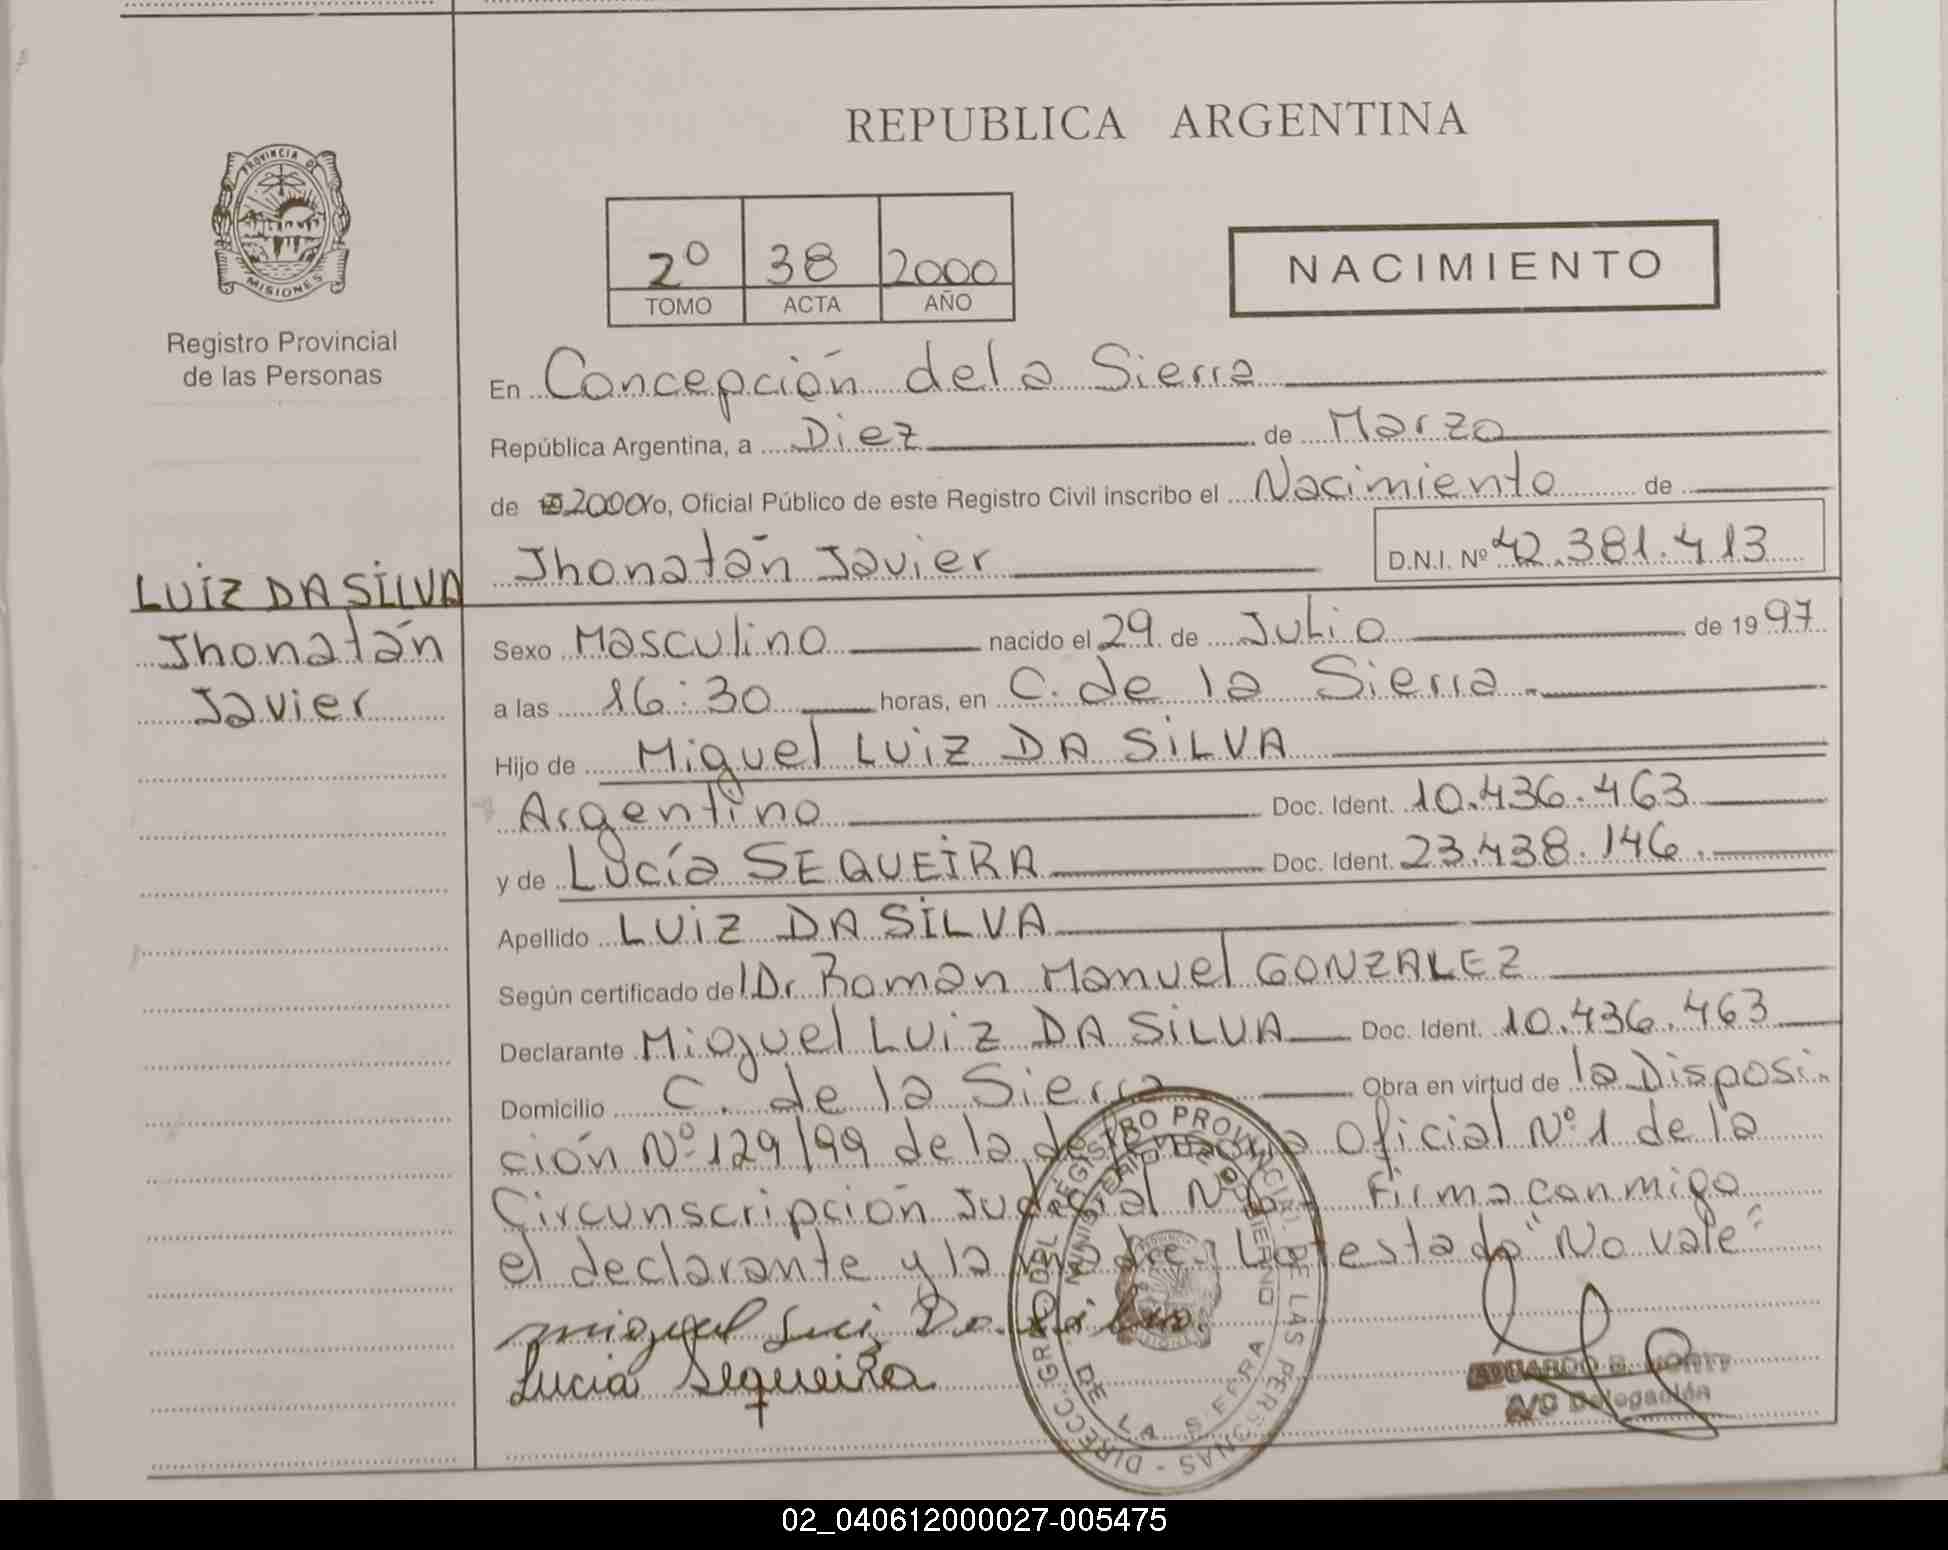 REPUBLICA ARGENTINA
PROVINCIA DE
MISIONES
Registro Provincial
de las Personas
2º 38 2000
TOMO ACTA AÑO
NACIMIENTO
En Concepción de la Sierra
República Argentina, a Diez de Marzo
de 2000 Yo, Oficial Público de este Registro Civil inscribo el Nacimiento de
Jhonatán Javier D.N.I. Nº 42.381.413
LUIZ DA SILVA
Jhonatán
Javier
Sexo Masculino nacido el 29 de Julio de 1997
a las 16:30 horas, en C. de la Sierra
Hijo de Miguel LUIZ DA SILVA
Argentino Doc. Ident. 10.436.463
y de Lucía SEQUEIRA Doc. Ident. 23.438.146
Apellido LUIZ DA SILVA
Según certificado del Dr Roman Manuel GONZALEZ
Declarante Miguel LUIZ DA SILVA Doc. Ident. 10.436.463
Domicilio C. de la Sierra Obra en virtud de la Disposi
ción Nº 129/99 de la Oficial Nº 1 de la
Circunscripción Judicial Firma conmigo
el declarante y la madre. Lo testado "No vale"
miguel Luiz Da Silva
Lucia Sequeira
DIRECC. GRAL. DEL REGISTRO PROVINCIAL DE LAS PERSONAS
MINISTERIO DE GOBIERNO
DE LA SIERRA
EDUARDO
A/C Delegación
02_040612000027-005475